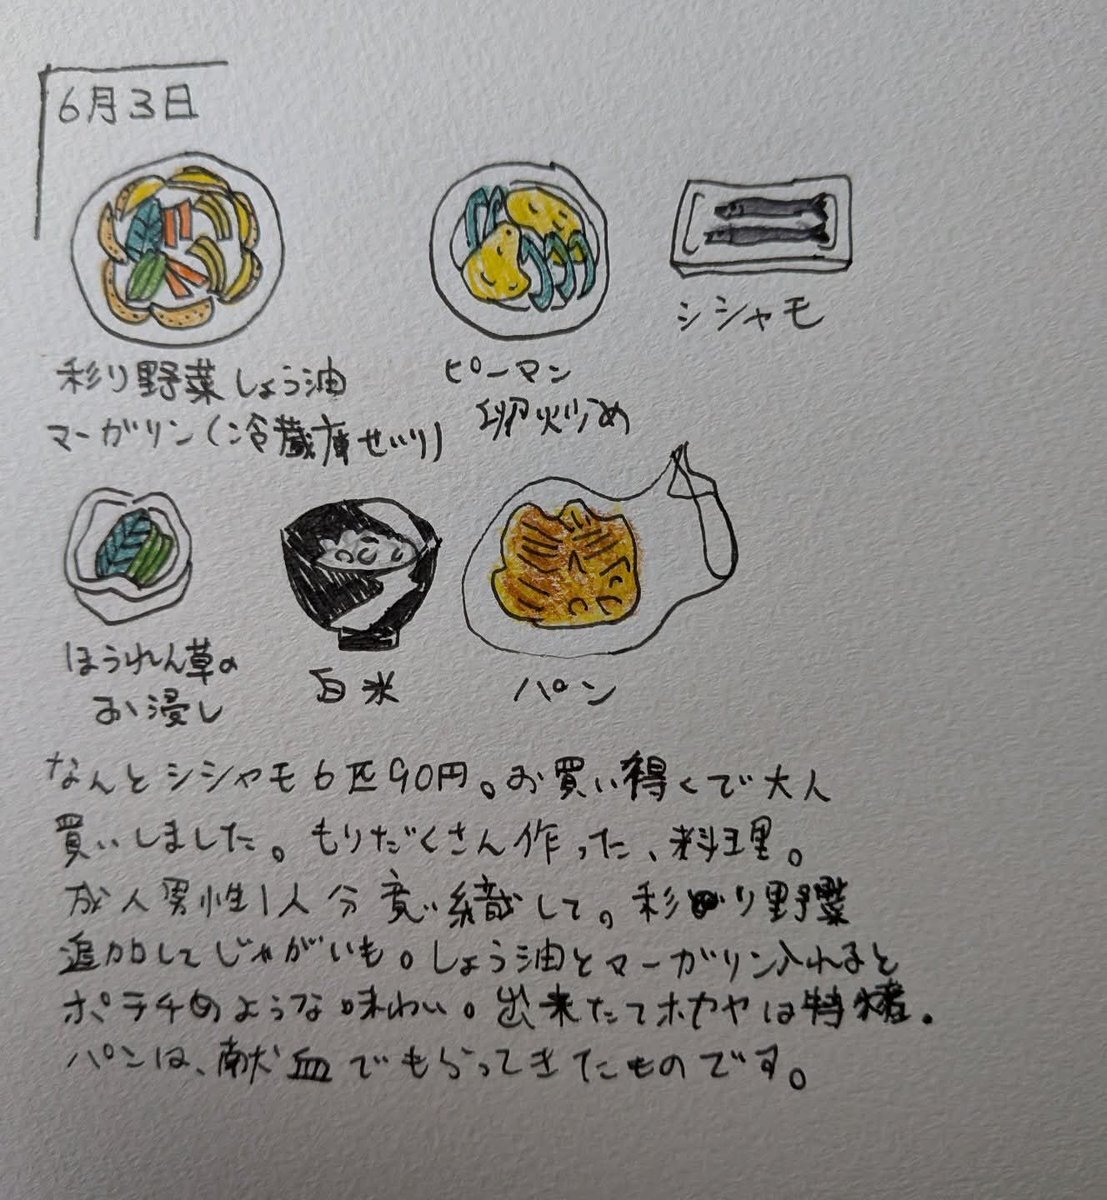 6月3日
彩り野菜しょう油
マーガリン(冷蔵庫せいり)
ピーマン
卵炒め
シシャモ
ほうれん草の
お浸し
白米
パン
なんとシシャモ6匹90円。お買い得くで大人
買いしました。もりだくさん作った、料理。
成人男性1人分意識して。彩り野菜
追加してじゃがいも。しょう油とマーガリン入れると
ポテチのような味わい。出来たてホカヤは特
パンは、献血でもらってきたものです。